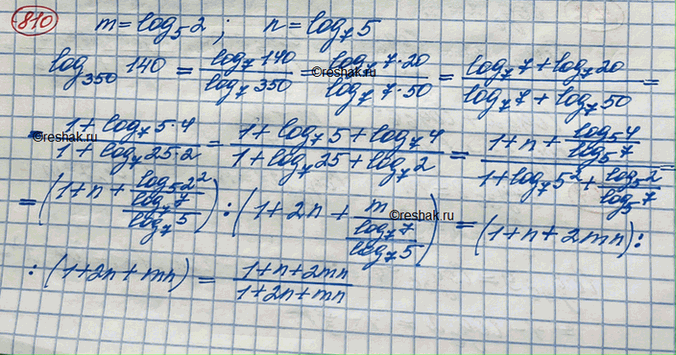 810 m = log₅2 ; n = log₇5
log₃₅₀ 140 = (log₇ 140)/(log₇ 350) = (log₇ 7·20)/(log₇ 7·50) = (log₇ 7 + log₇ 20)/(log₇ 7 + log₇ 50) =
= (1 + log₇ 5·4)/(1 + log₇ 25·2) = (1 + log₇ 5 + log₇ 4)/(1 + log₇ 25 + log₇ 2) = (1 + n + (log₅4)/(log₅7))/(1 + log₇ 5² + (log₅2)/(log₅7)) =
= (1 + n + (log₅2²)/((log₇7)/(log₇5))) : (1 + 2n + m/((log₇7)/(log₇5))) = (1 + n + 2mn) :
: (1 + 2n + mn) = (1 + n + 2mn)/(1 + 2n + mn)
©reshak.ru
©reshak.ru
©reshak.ru